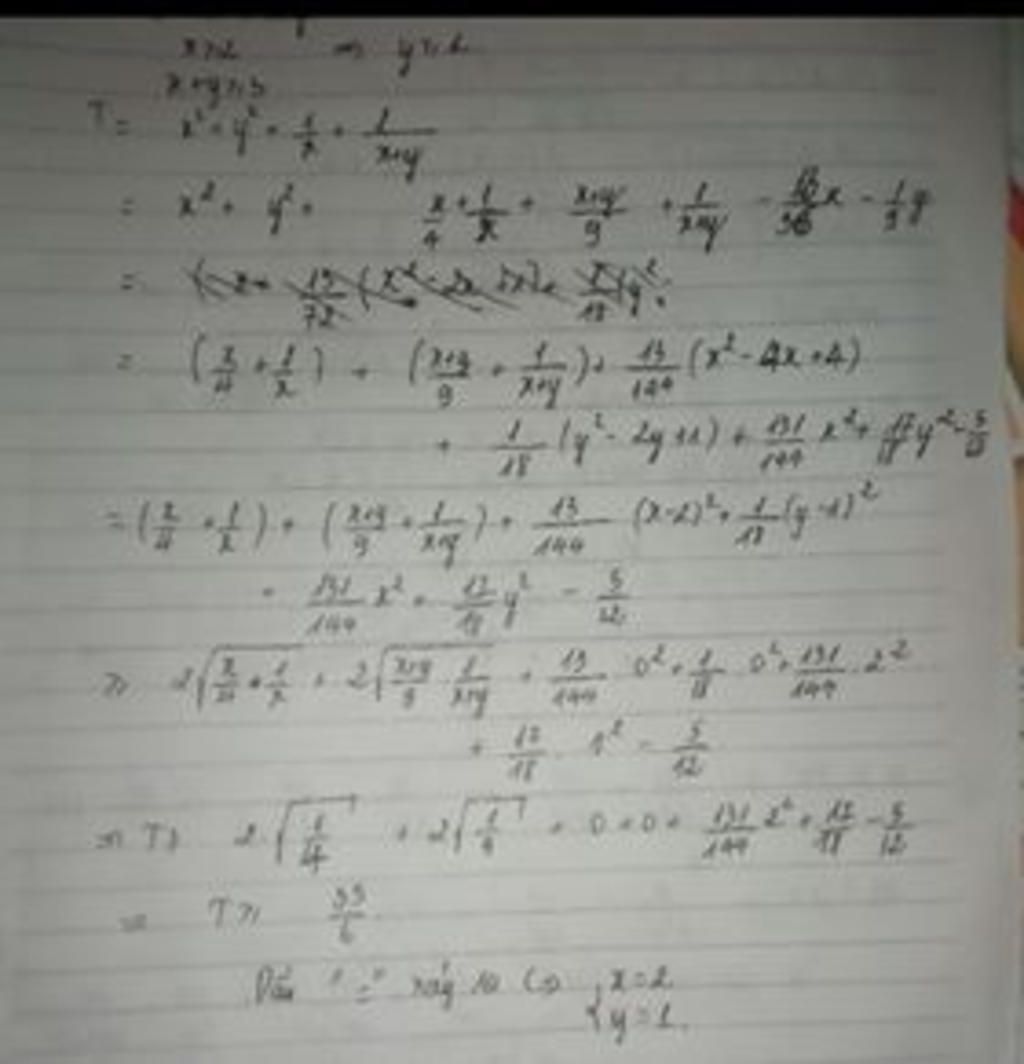 x ≥ 2 ⇒ y ≥ 1
x + y ≥ 3
T = x² + y² + 1/x + 1/(x+y)
= x² + y² + x/4 + 1/x + (x+y)/9 + 1/(x+y) - 13/36 x - 1/9 y
= (x/4 + 1/x) + ((x+y)/9 + 1/(x+y)) + 13/144 (x² - 4x + 4)
+ 1/18 (y² - 2y + 1) + 131/144 x² + 17/18 y² - 5/12
= (x/4 + 1/x) + ((x+y)/9 + 1/(x+y)) + 13/144 (x-2)² + 1/18 (y-1)²
+ 131/144 x² + 17/18 y² - 5/12
≥ 2√(x/4 · 1/x) + 2√((x+y)/9 · 1/(x+y)) + 13/144 · 0² + 1/18 · 0² + 131/144 · 2²
+ 17/18 · 1² - 5/12
⇒ T ≥ 2·√(1/4) + 2√(1/9) + 0 + 0 + 131/144 · 2² + 17/18 - 5/12
⇒ T ≥ 35/6
Dấu "=" xảy ra ⇔ { x = 2
y = 1.